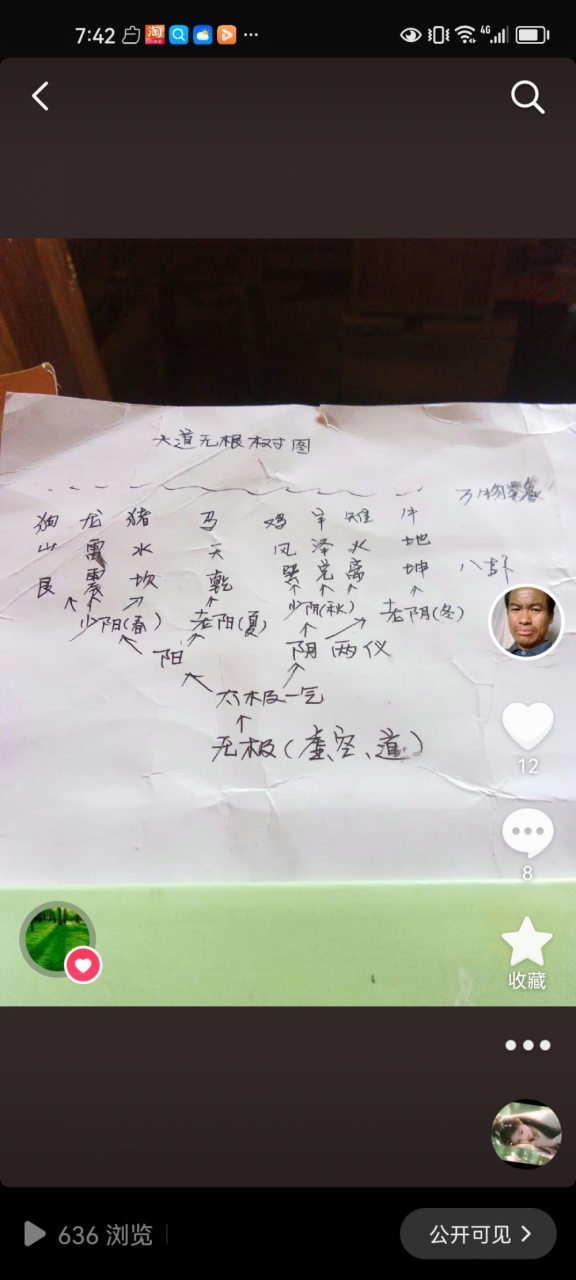 7:42
4G
大道无根树图
万物类象
狗 龙 猪 马 鸡 羊 雉 牛
山 雷 水 天 风 泽 火 地
艮 震 坎 乾 巽 兑 离 坤 八卦
少阳(春) 老阳(夏) 少阴(秋) 老阴(冬)
阳 阴 两仪
太极一气
无极(虚、空、道)
12
8
收藏
636 浏览
公开可见